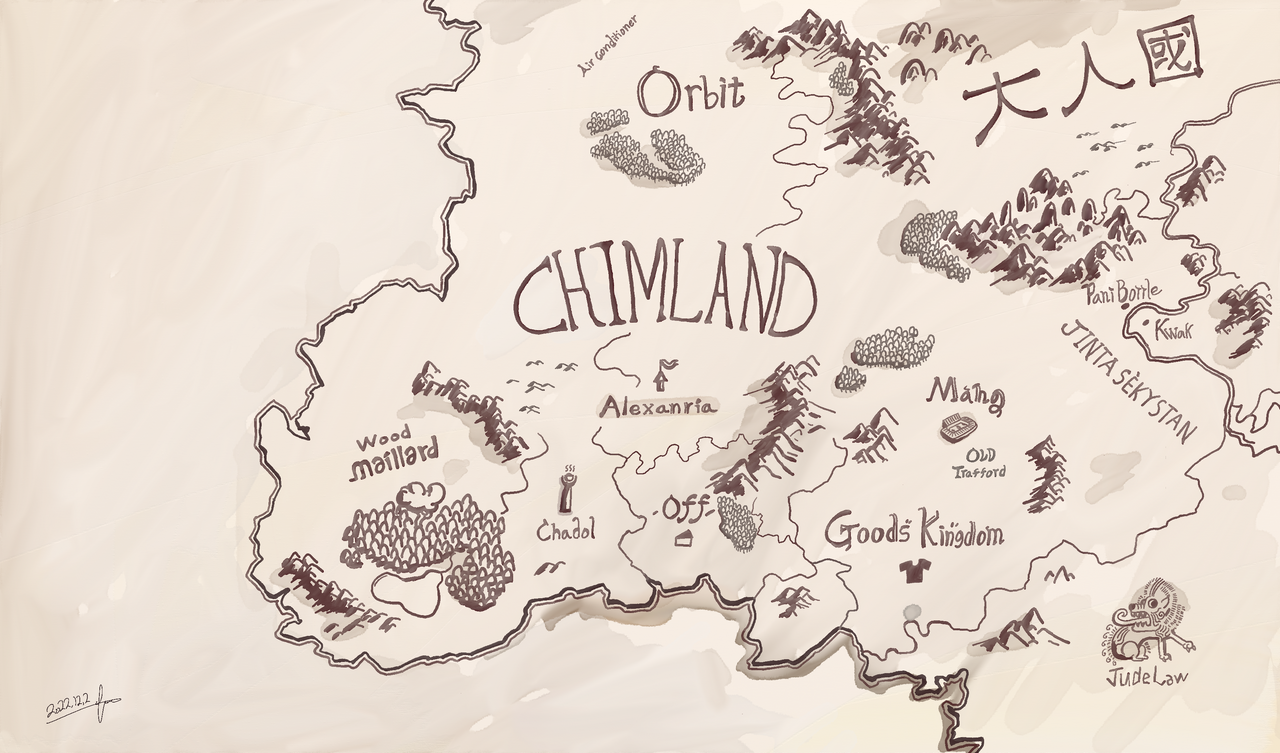 Air Conditioner
Orbit
大人國
CHIMLAND
Pani Bottle
Kwak
JINTA SÈKYSTAN
Alexanria
Máhg
Wood
maillard
OLD
Trafford
Chadol
Off
Goods Kingdom
JudeLaw
2022.12.2